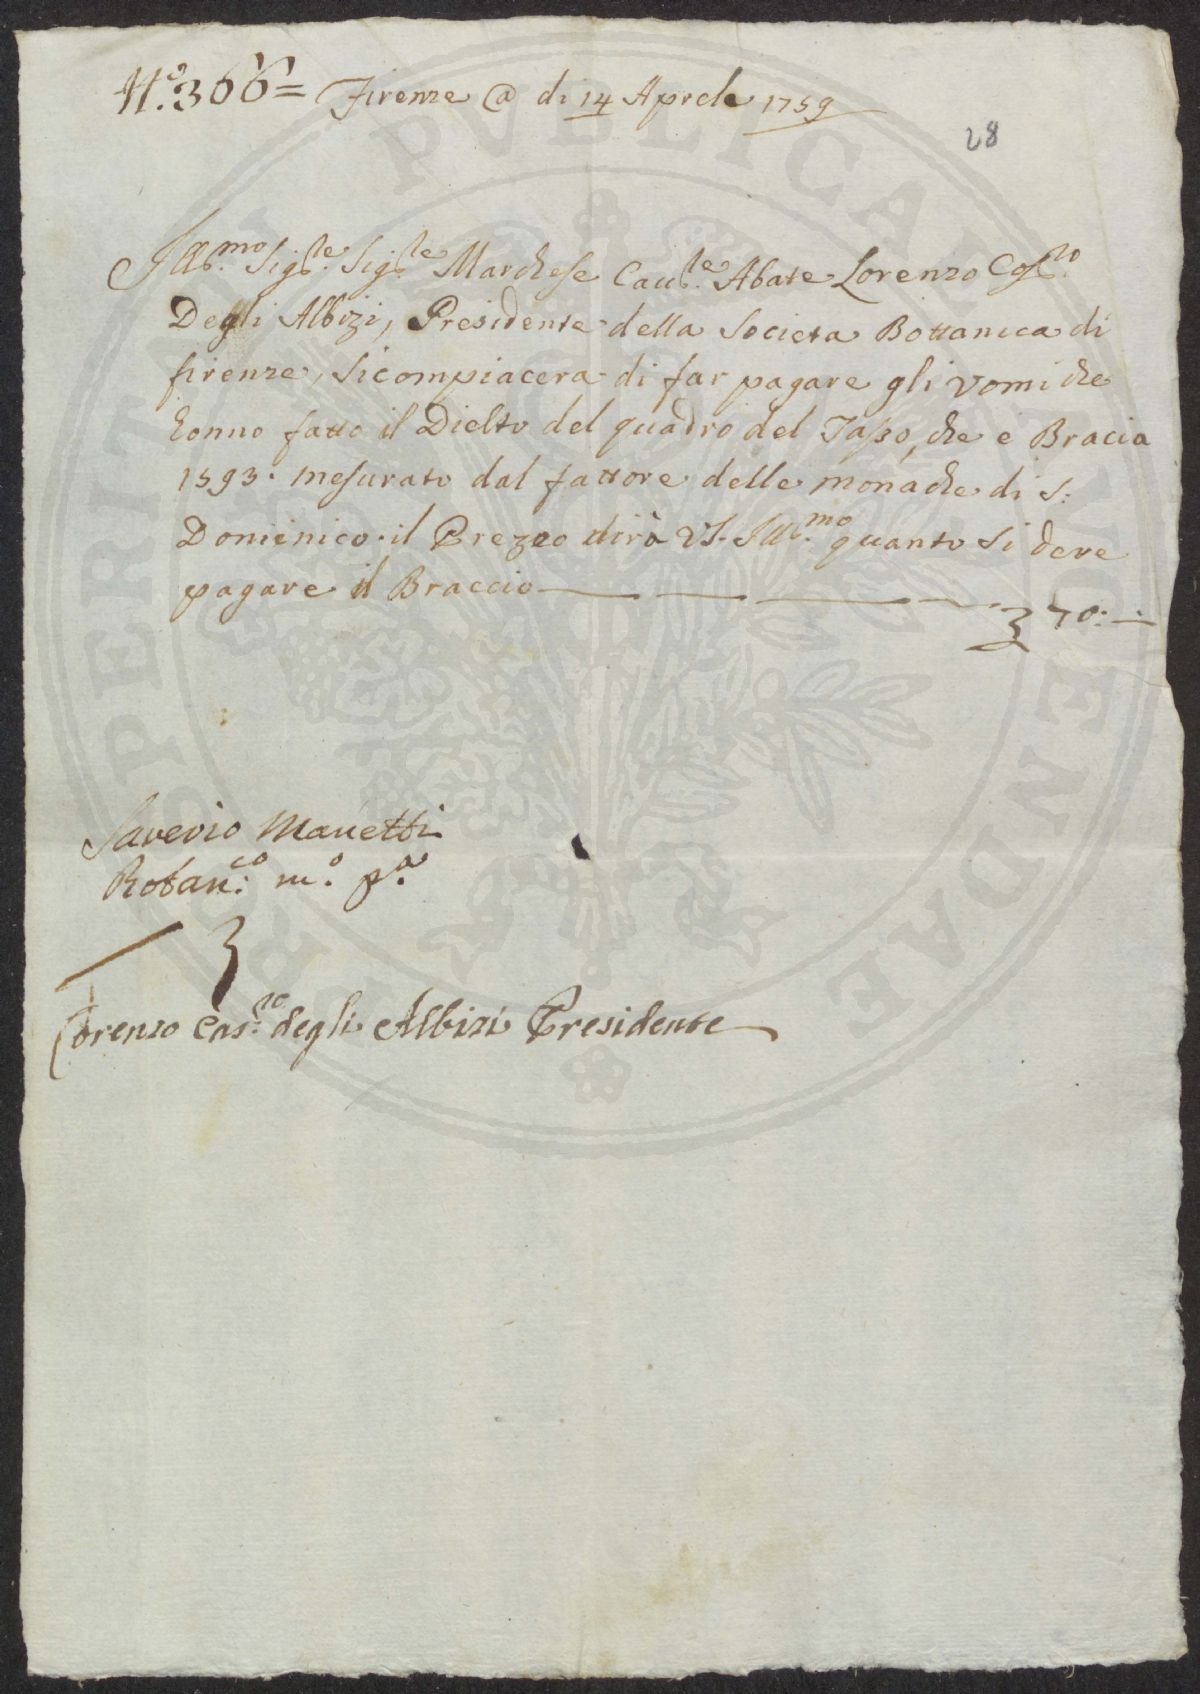 N.º 366= Firenze @ di 14 Aprele 1759
28
Ill.mo Sig.re Sig.re Marchese Cau.re Abate Lorenzo Cos.zo
Degli Albizi, Presidente della Societa Bottanica di
firenze, si compiacera di far pagare gli vomi che
honno fatto il Dielto del quadro del Tasso, che e Bracia
1593. mesurato dal fattore delle monache di S:
Domenico. il Prezzo dirà VS. Ill.mo quanto si deve
pagare il Braccio
70:—
Saverio Manetti
Botan.co m.º p.a
Lorenzo Cas.zo degli Albizi Presidente
PVBLICAE